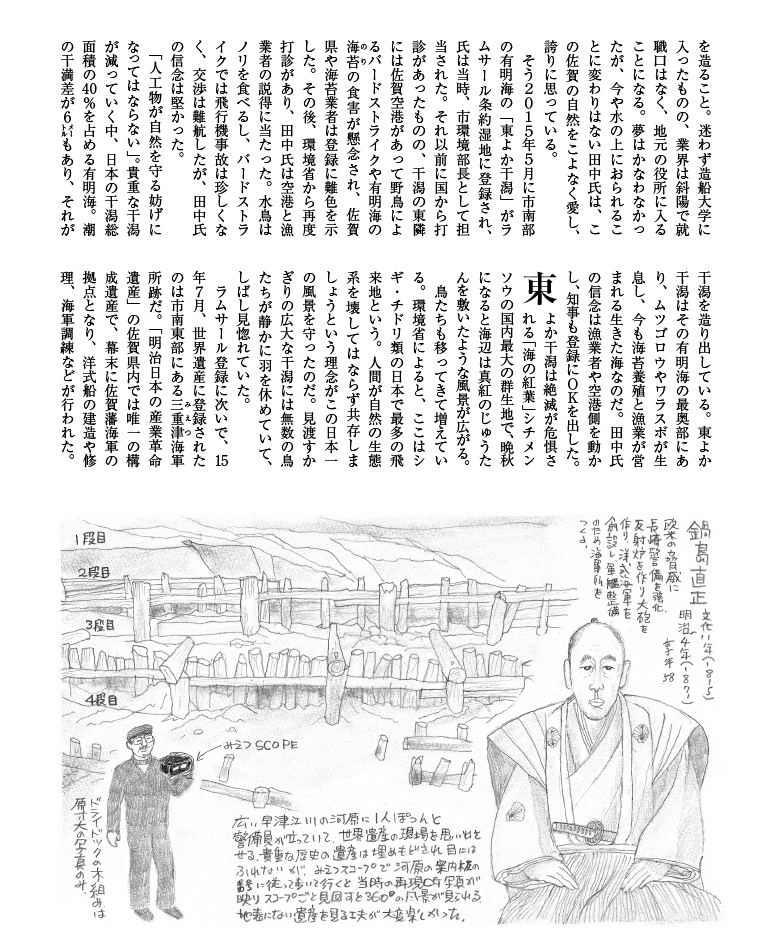 を造ること。迷わず造船大学に
入ったものの、業界は斜陽で就
職口はなく、地元の役所に入る
ことになる。夢はかなわなかっ
たが、今や水の上におられるこ
とに変わりはない田中氏は、こ
の佐賀の自然をこよなく愛し、
誇りに思っている。
そう2015年5月に市南部
の有明海の「東よか干潟」がラ
ムサール条約湿地に登録され、
氏は当時、市環境部長として担
当された。それ以前に国から打
診があったものの、干潟の東隣
には佐賀空港があって野鳥によ
るバードストライクや有明海の
海苔の食害が懸念され、佐賀
のり
県や海苔業者は登録に難色を示
した。その後、環境省から再度
打診があり、田中氏は空港と漁
業者の説得に当たった。水鳥は
ノリを食べるし、バードストラ
イクでは飛行機事故は珍しくな
く、交渉は難航したが、田中氏
の信念は堅かった。
「人工物が自然を守る妨げに
なってはならない」。貴重な干潟
が減っていく中、日本の干潟総
面積の40%を占める有明海。潮
の干満差が6㍍もあり、それが
干潟を造り出している。東よか
干潟はその有明海の最奥部にあ
り、ムツゴロウやワラスボが生
息し、今も海苔養殖と漁業が営
まれる生きた海なのだ。田中氏
の信念は漁業者や空港側を動か
し、知事も登録にOKを出した。
東よか干潟は絶滅が危惧さ
れる「海の紅葉」シチメン
ソウの国内最大の群生地で、晩秋
になると海辺は真紅のじゅうた
んを敷いたような風景が広がる。
鳥たちも移ってきて増えてい
る。環境省によると、ここはシ
ギ・チドリ類の日本で最多の飛
来地という。人間が自然の生態
系を壊してはならず共存しま
しょうという理念がこの日本一
の風景を守ったのだ。見渡すか
ぎりの広大な干潟には無数の鳥
たちが静かに羽を休めていて、
しばし見惚れていた。
ラムサール登録に次いで、15
年7月、世界遺産に登録された
のは市南東部にある三重津海軍
みえつ
所跡だ。「明治日本の産業革命
遺産」の佐賀県内では唯一の構
成遺産で、幕末に佐賀藩海軍の
拠点となり、洋式船の建造や修
理、海軍調練などが行われた。
鍋島直正
文化11年(1815)
明治4年(1871)
享年58
欧米の脅威に
長崎警備を強化、
反射炉を作り大砲を
作り、洋式海軍を
創設し軍艦整備
のため海軍所を
つくる。
1段目
2段目
3段目
4段目
みえつSCOPE
ドライドックの木組みは
原寸大の写真のみ。
広い早津江川の河原に1人ぽつんと
警備員が立っていて、世界遺産の現場を思い出さ
せる。貴重な歴史の遺産は埋めもどされ目には
ふれないが、みえつスコープで河原の案内板の
番号に従って歩いて行くと当時の再現CG写真が
映りスコープごと見回すと360°の風景が見られる。
地表にない遺産を見る工夫が大変楽しかった。